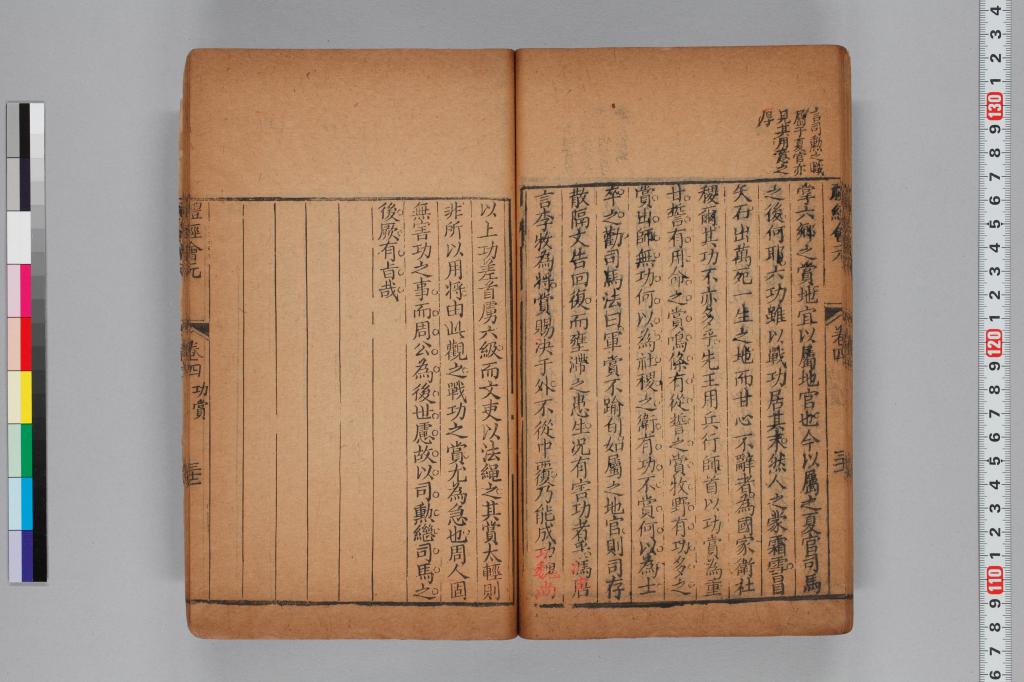 言司勲之職
屬于夏官亦
見其用意之
厚
掌六鄉之賞地宜以屬地官也今以屬之夏官司馬
之後何耶六功雖以戰功居其末然人之蒙霜露冒
矢石出萬死一生之地而甘心不辭者為國家衛社
稷爾其功不亦多乎先王用兵行師首以功賞為重
甘誓有用命之賞鳴條有從誓之賞牧野有功多之
賞出師無功何以為社稷之衛有功不賞何以為士
卒之勸司馬法曰軍賞不踰旬如屬之地官則司存
散隔文告回復而壅滯之患生況有害功者乎馮唐
言李牧為將賞賜決于外不從中覆乃能成功魏尚
以上功差首虜六級而文吏以法繩之其賞太輕則
非所以用將由此觀之戰功之賞尤為急也周人固
無害功之事而周公為後世慮故以司勲繼司馬之
後厥有旨哉
禮經會元
卷四 功賞